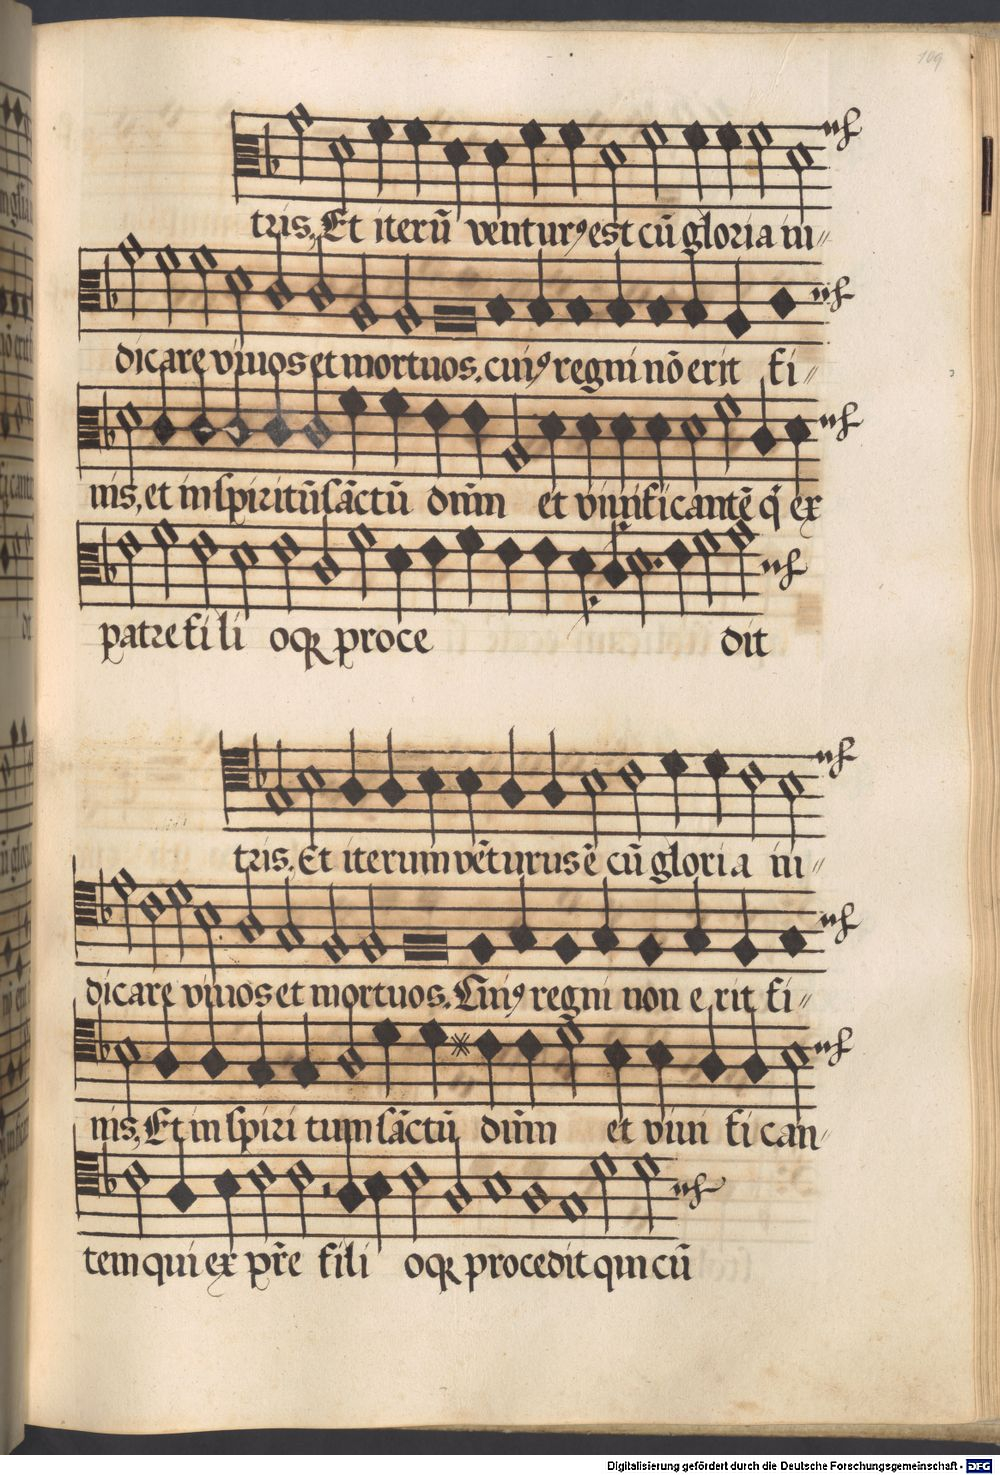 109
tris, Et iterū venturꝰ est cū gloria iu//
dicare vivos et mortuos. cuiꝰ regni nō erit fi//
nis, et in spiritū sāctū dn̄m et vivificantē q̇ ex
patre fili oqꝫ proce dit
tris, Et iterum vēturus ē cū gloria iu//
dicare vivos et mortuos. Cuiꝰ regni non erit fi//
nis, Et in spiritum sāctū dn̄m et vivi fi can//
tem qui ex pr̄e fili oqꝫ procedit qui cū
Digitalisierung gefördert durch die Deutsche Forschungsgemeinschaft - DFG